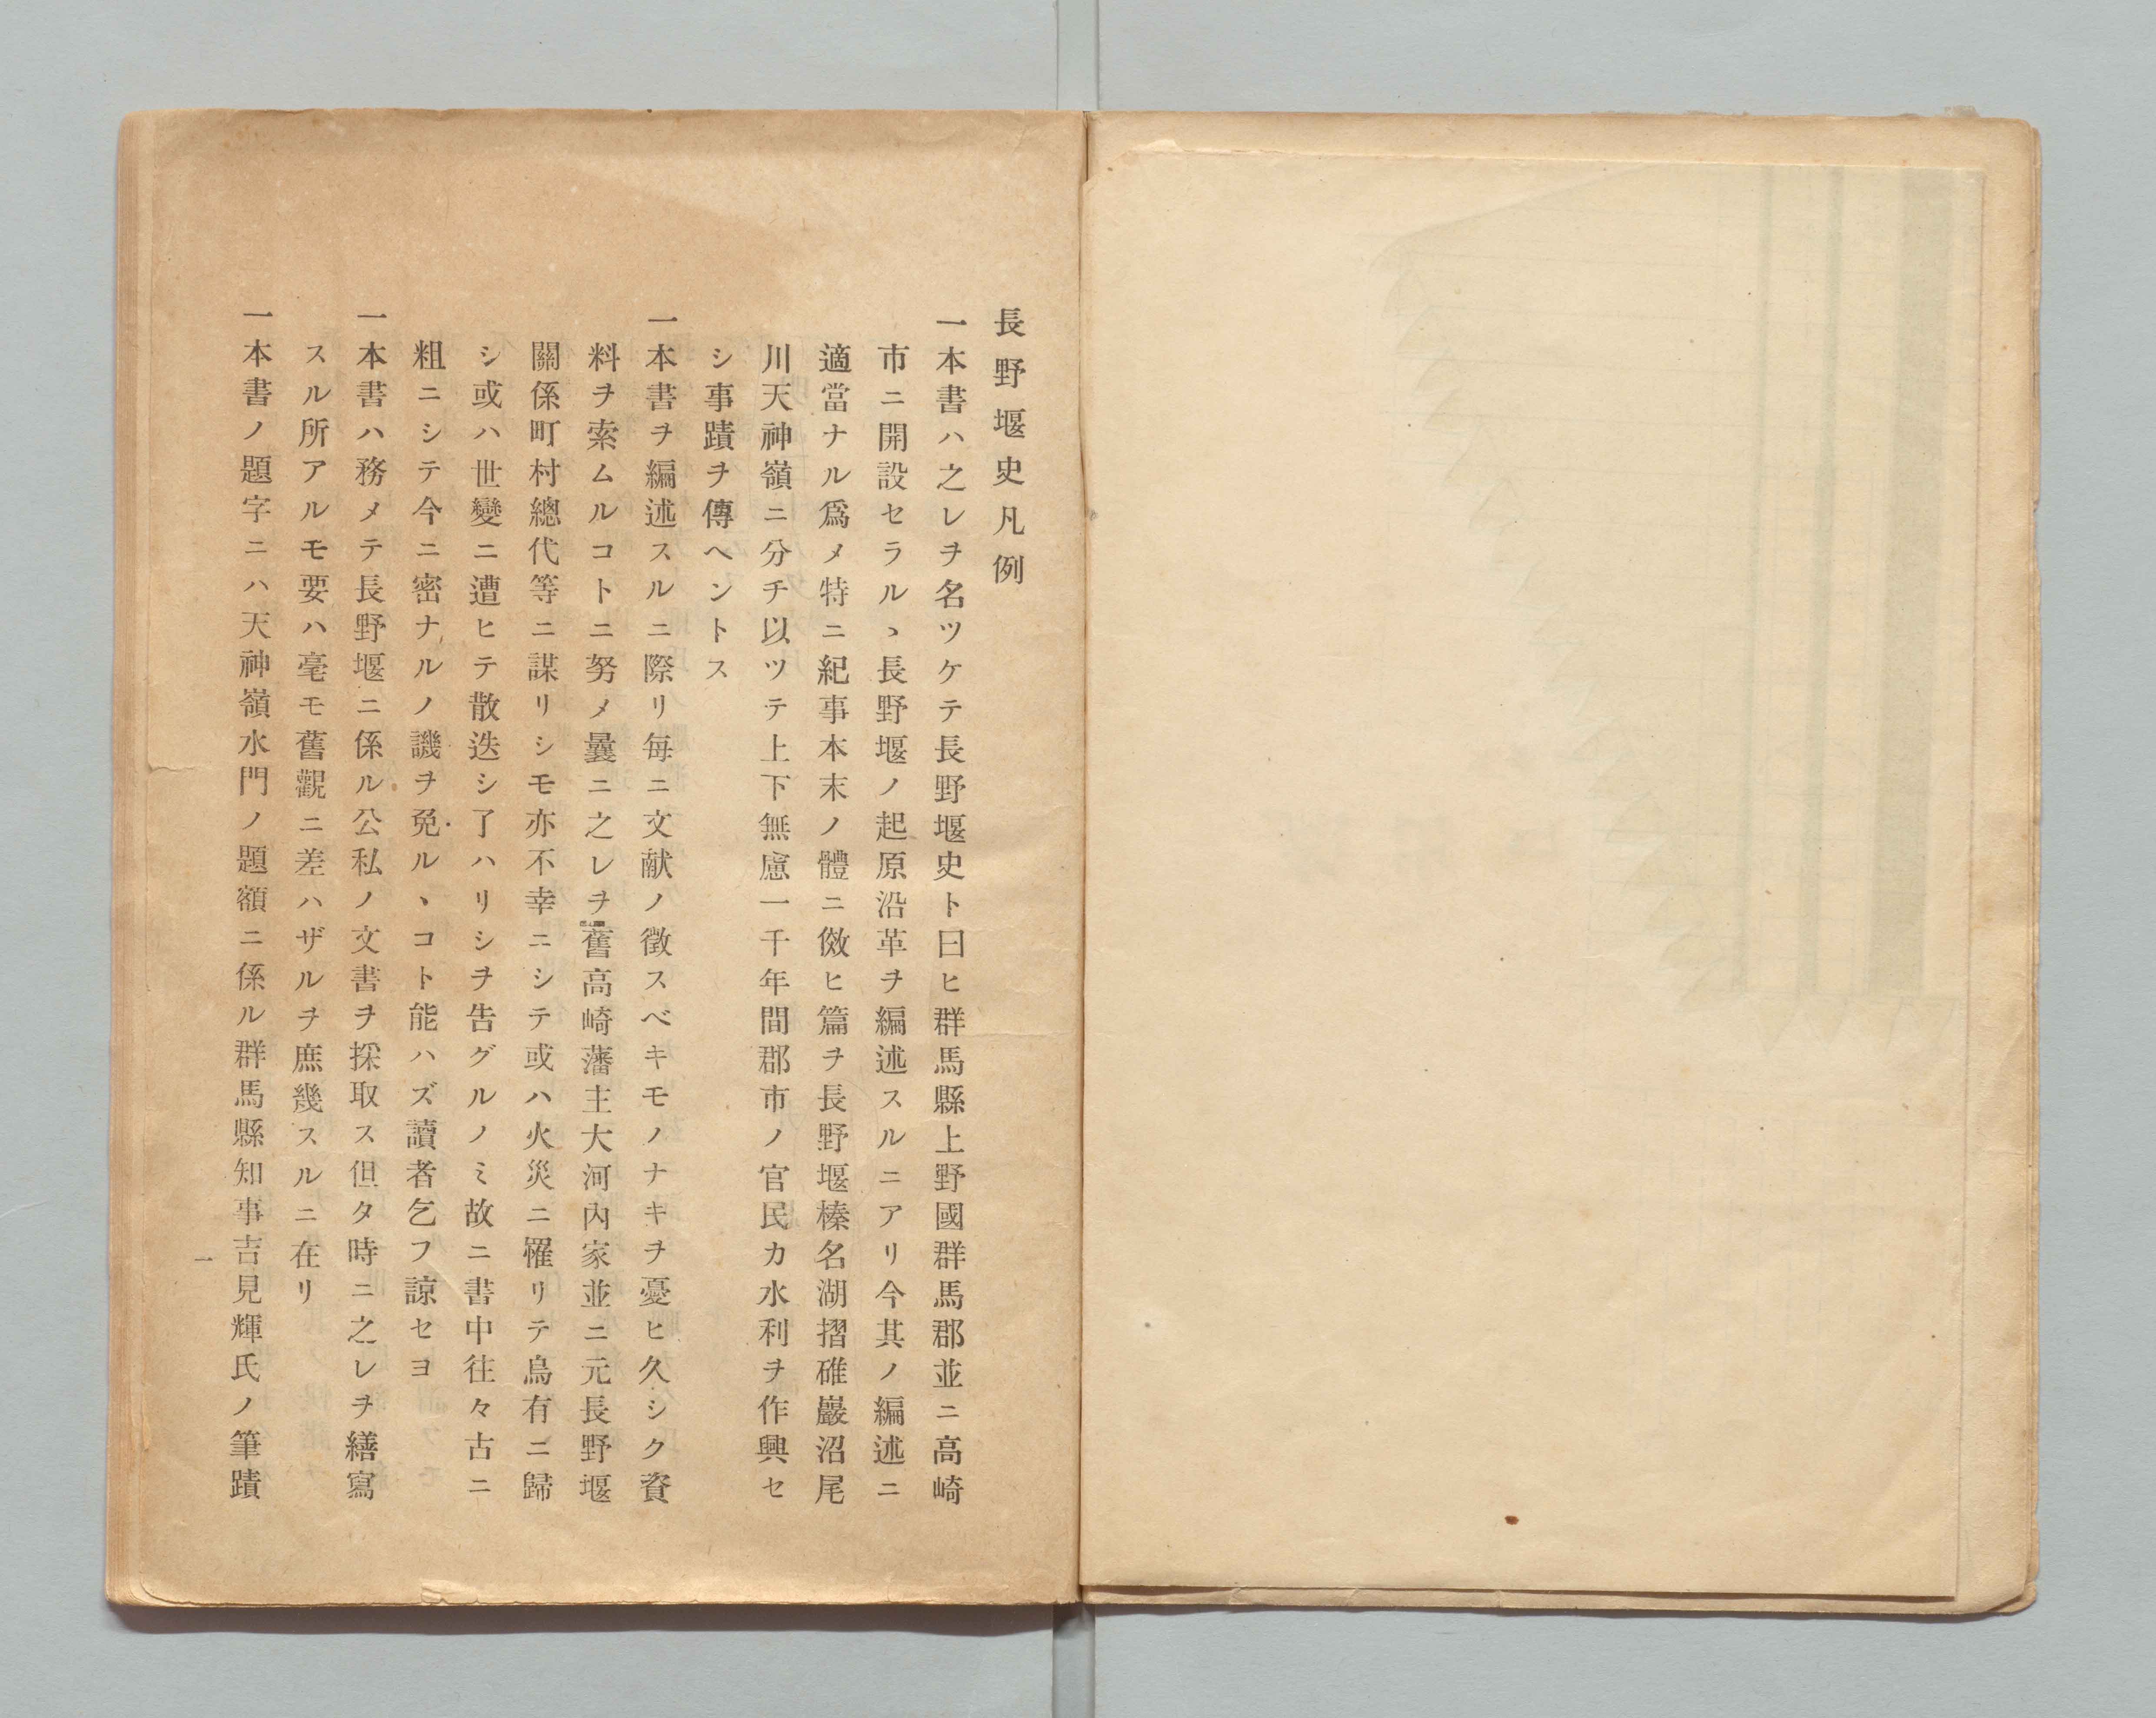 長野堰史凡例
一本書ハ之レヲ名ツケテ長野堰史ト曰ヒ群馬縣上野國群馬郡並ニ高崎
市ニ開設セラルヽ長野堰ノ起原沿革ヲ編述スルニアリ今其ノ編述ニ
適當ナル爲メ特ニ紀事本末ノ體ニ傚ヒ篇ヲ長野堰榛名湖摺碓巖沼尾
川天神嶺ニ分チ以ツテ上下無慮一千年間郡市ノ官民カ水利ヲ作興セ
シ事蹟ヲ傳ヘントス
一本書ヲ編述スルニ際リ毎ニ文献ノ徴スベキモノナキヲ憂ヒ久シク資
料ヲ索ムルコトニ努メ曩ニ之レヲ舊高崎藩主大河内家並ニ元長野堰
關係町村總代等ニ謀リシモ亦不幸ニシテ或ハ火災ニ罹リテ烏有ニ歸
シ或ハ世變ニ遭ヒテ散迭シ了ハリシヲ告グルノミ故ニ書中往々古ニ
粗ニシテ今ニ密ナルノ譏ヲ免ルヽコト能ハズ讀者乞フ諒セヨ
一本書ハ務メテ長野堰ニ係ル公私ノ文書ヲ採取ス但タ時ニ之レヲ繕寫
スル所アルモ要ハ毫モ舊觀ニ差ハザルヲ庶幾スルニ在リ
一本書ノ題字ニハ天神嶺水門ノ題額ニ係ル群馬縣知事吉見輝氏ノ筆蹟
一